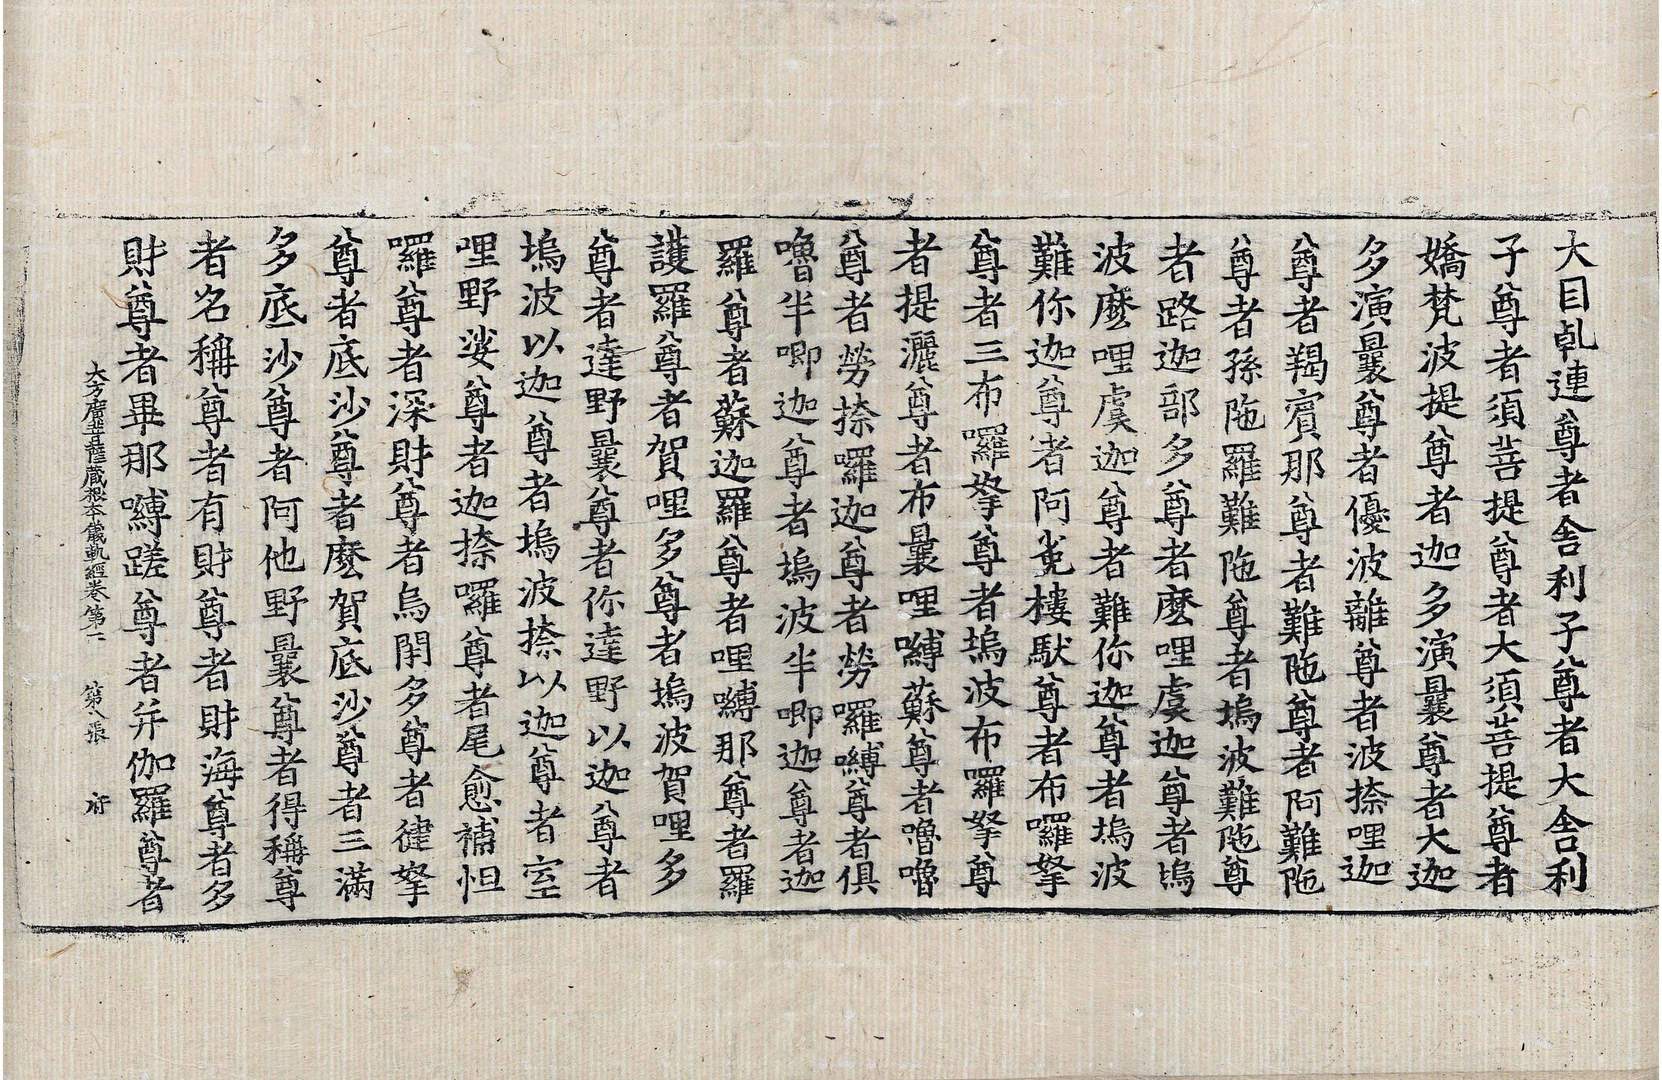 大目乹連尊者舎利子尊者大舎利
子尊者須菩提尊者大須菩提尊者
嬌梵波提尊者迦多演曩尊者大迦
多演曩尊者優波離尊者波捺哩迦
尊者羯賓那尊者難陁尊者阿難陁
尊者孫陁羅難陁尊者塢波難陁尊
者路迦部多尊者麽哩虞迦尊者塢
波麽哩虞迦尊者難你迦尊者塢波
難你迦尊者阿㝹樓馱尊者布囉拏
尊者三布囉拏尊者塢波布囉拏尊
者提灑尊者布曩哩嚩蘇尊者嚕嚕
尊者勞捺囉迦尊者勞囉嚩尊者俱
嚕半唧迦尊者塢波半唧迦尊者迦
羅尊者蘇迦羅尊者哩嚩那尊者羅
護羅尊者賀哩多尊者塢波賀哩多
尊者達野曩尊者你達野以迦尊者
塢波以迦尊者塢波捺以迦尊者室
哩野娑尊者迦捺囉尊者尾愈補怛
囉尊者深財尊者烏閉多尊者徤拏
尊者底沙尊者麽賀底沙尊者三滿
多底沙尊者阿他野曩尊者得稱尊
者名稱尊者有財尊者財海尊者多
財尊者畢那嚩蹉尊者并伽羅尊者
大方廣菩薩藏根本儀軌經卷第一 第八張 府